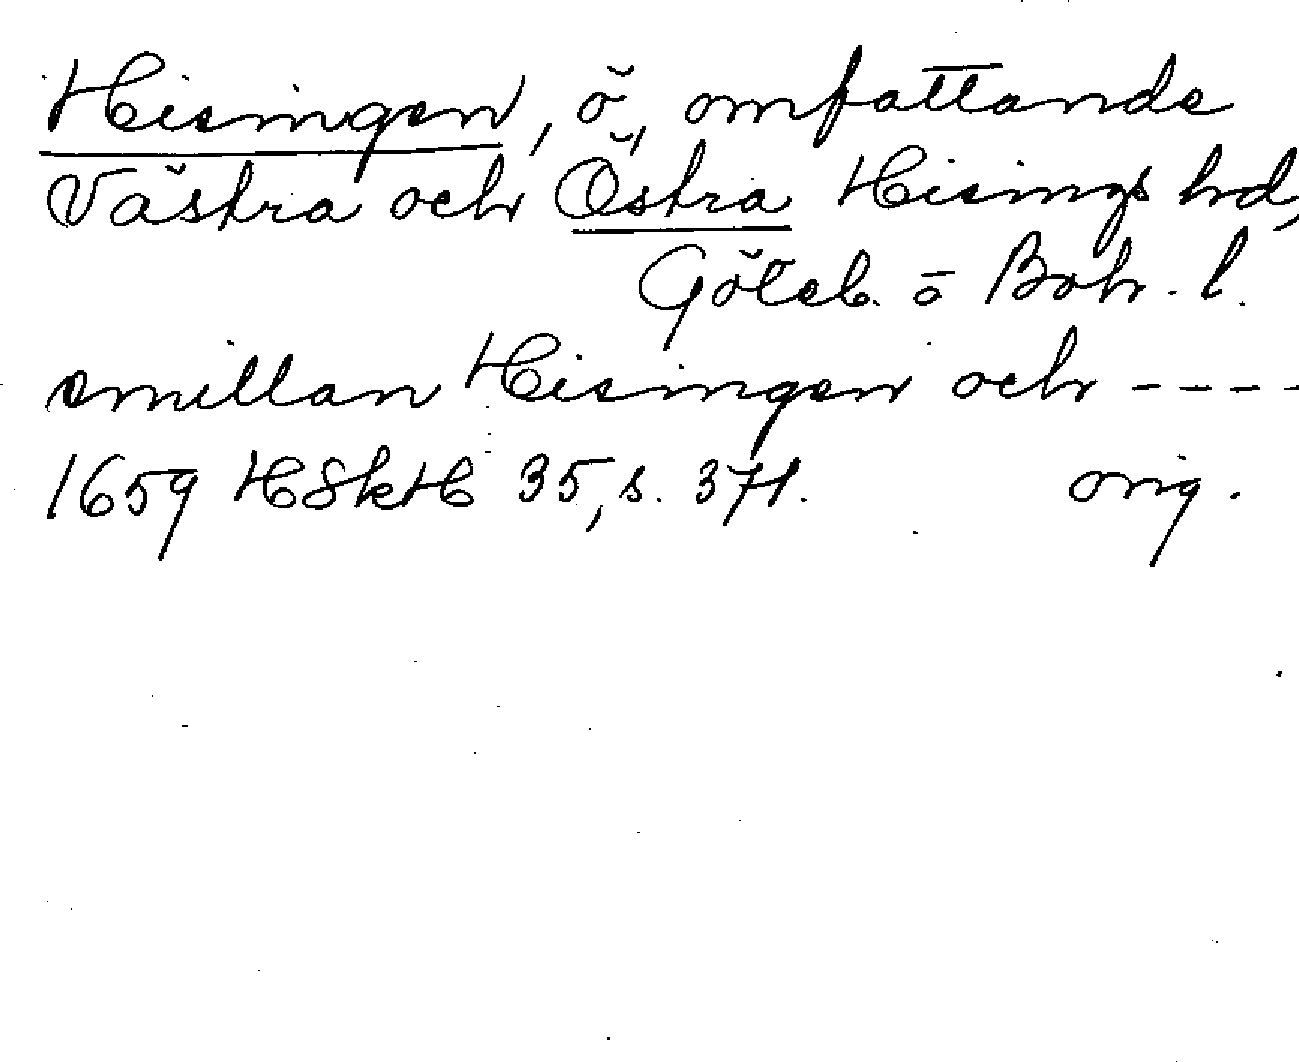 Hisingen, ö, omfattande
Västra och Östra Hisings hd,
Göteb. o Boh. l.
emillan Hisingen och ----
1659 HSkH 35, s. 371. orig.